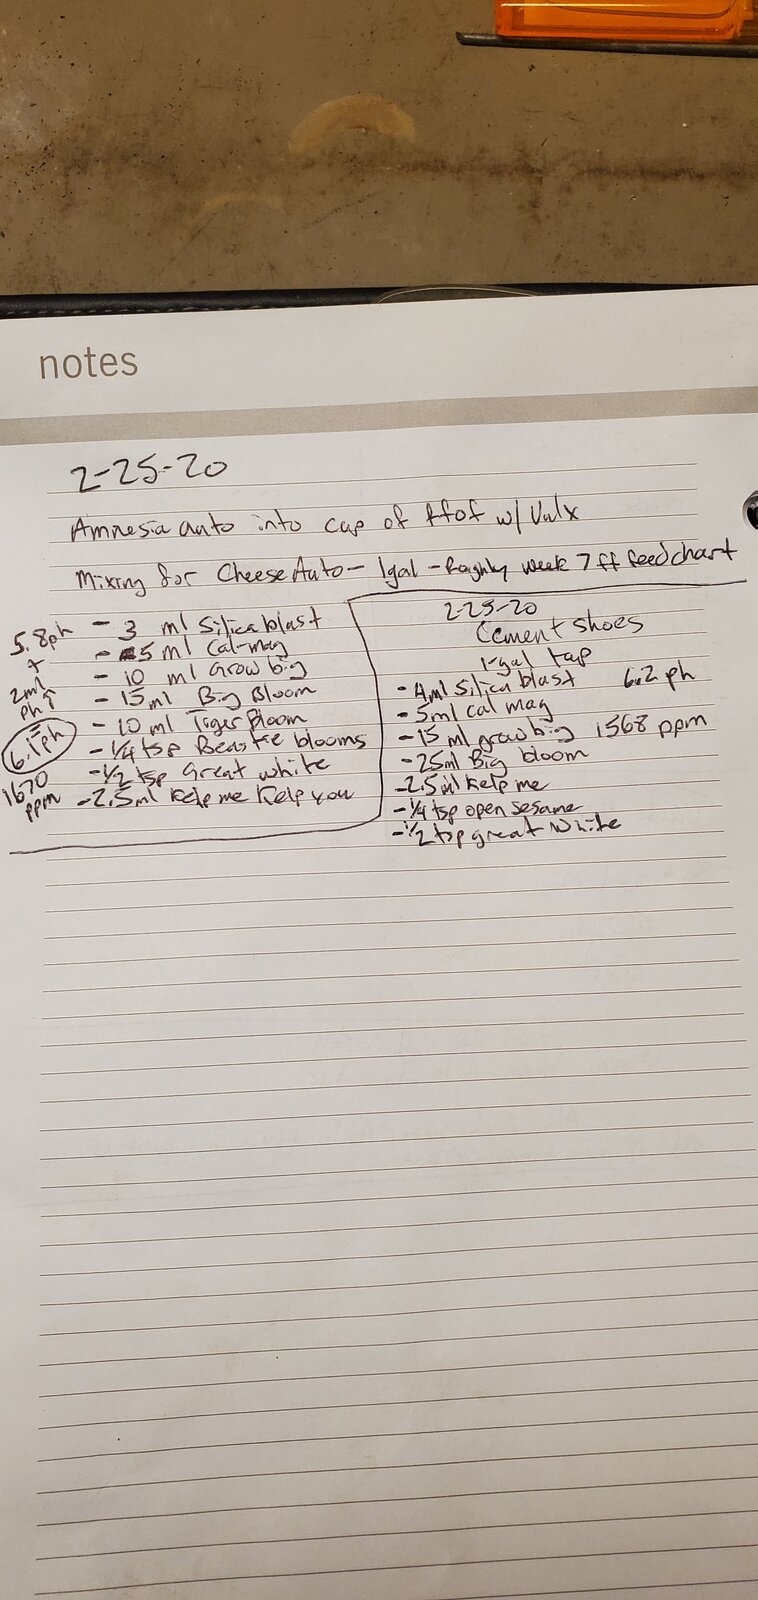 notes
2-25-20
Amnesia auto into cup of ffof w/
Mixing for Cheese Auto - 1gal - Roughly week 7 ff feed chart
5.8ph
+
2ml
ph↑
=
6.1ph
1670
ppm
- 3 ml Silica blast
- 5 ml Cal-mag
- 10 ml Grow big
- 15 ml Big Bloom
- 10 ml Tiger Bloom
- 1/4 tsp Beastie blooms
- 1/2 tsp Great white
- 2.5ml Kelp me Kelp you
2-25-20
Cement shoes
1-gal tap
- 4ml Silica blast 6.2 ph
- 5ml cal mag
- 15 ml grow big 1568 ppm
- 25ml Big bloom
- 2.5ml Kelp me
- 1/4 tsp open sesame
- 1/2 tsp great white